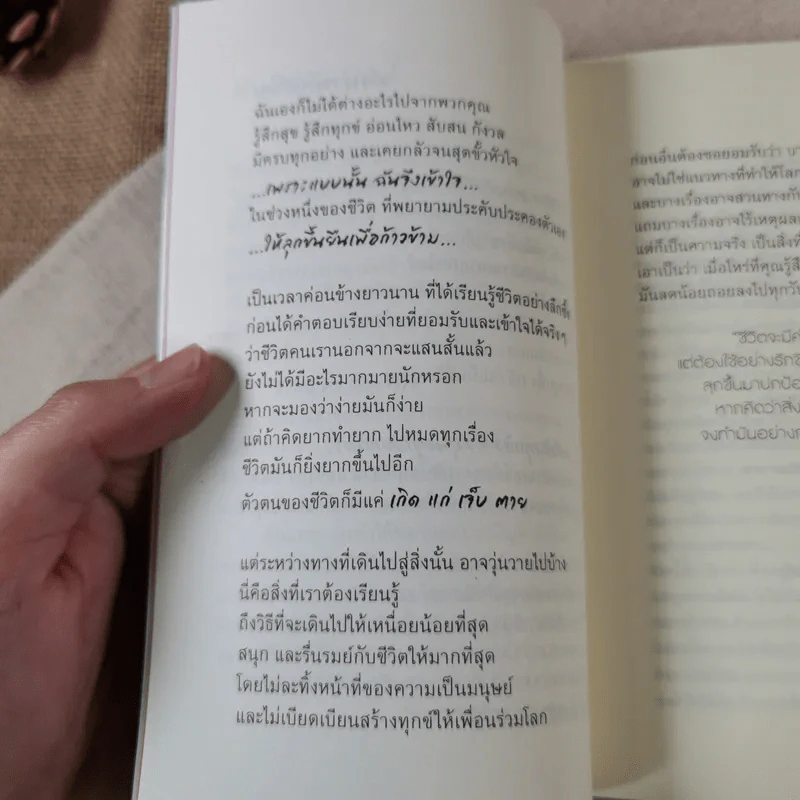 ฉันเองก็ไม่ได้ต่างอะไรไปจากพวกคุณ
รู้สึกสุข รู้สึกทุกข์ อ่อนไหว สับสน กังวล
มีครบทุกอย่าง และเคยกลัวจนสุดขั้วหัวใจ
...เพราะแบบนั้น ฉันจึงเข้าใจ...
ในช่วงหนึ่งของชีวิต ที่พยายามประคับประคองตัวเอง
...ให้ลุกขึ้นยืนเพื่อก้าวข้าม...
เป็นเวลาค่อนข้างยาวนาน ที่ได้เรียนรู้ชีวิตอย่างลึกซึ้ง
ก่อนได้คำตอบเรียบง่ายที่ยอมรับและเข้าใจได้จริงๆ
ว่าชีวิตคนเรานอกจากจะแสนสั้นแล้ว
ยังไม่ได้มีอะไรมากมายนักหรอก
หากจะมองว่าง่ายมันก็ง่าย
แต่ถ้าคิดยากทำยาก ไปหมดทุกเรื่อง
ชีวิตมันก็ยิ่งยากขึ้นไปอีก
ตัวตนของชีวิตก็มีแค่ เกิด แก่ เจ็บ ตาย
แต่ระหว่างทางที่เดินไปสู่สิ่งนั้น อาจวุ่นวายไปบ้าง
นี่คือสิ่งที่เราต้องเรียนรู้
ถึงวิธีที่จะเดินไปให้เหนื่อยน้อยที่สุด
สนุก และรื่นรมย์กับชีวิตให้มากที่สุด
โดยไม่ละทิ้งหน้าที่ของความเป็นมนุษย์
และไม่เบียดเบียนสร้างทุกข์ให้เพื่อนร่วมโลก
ก่อนอื่นต้องขอยอมรับว่า
อาจไม่ใช่แนวทางที่ทำให้โลก
และบางเรื่องอาจสวนทางกับ
แถมบางเรื่องอาจไร้เหตุผล
แต่ก็เป็นความจริง เป็นสิ่งที่
เอาเป็นว่า เมื่อไหร่ที่คุณรู้สึ
มันลดน้อยถอยลงไปทุกวัน
"ชีวิตจะมี
แต่ต้องใช้อย่างรัก
ลุกขึ้นมาปกป้อ
หากคิดว่าสิ่ง
จงทำมันอย่าง